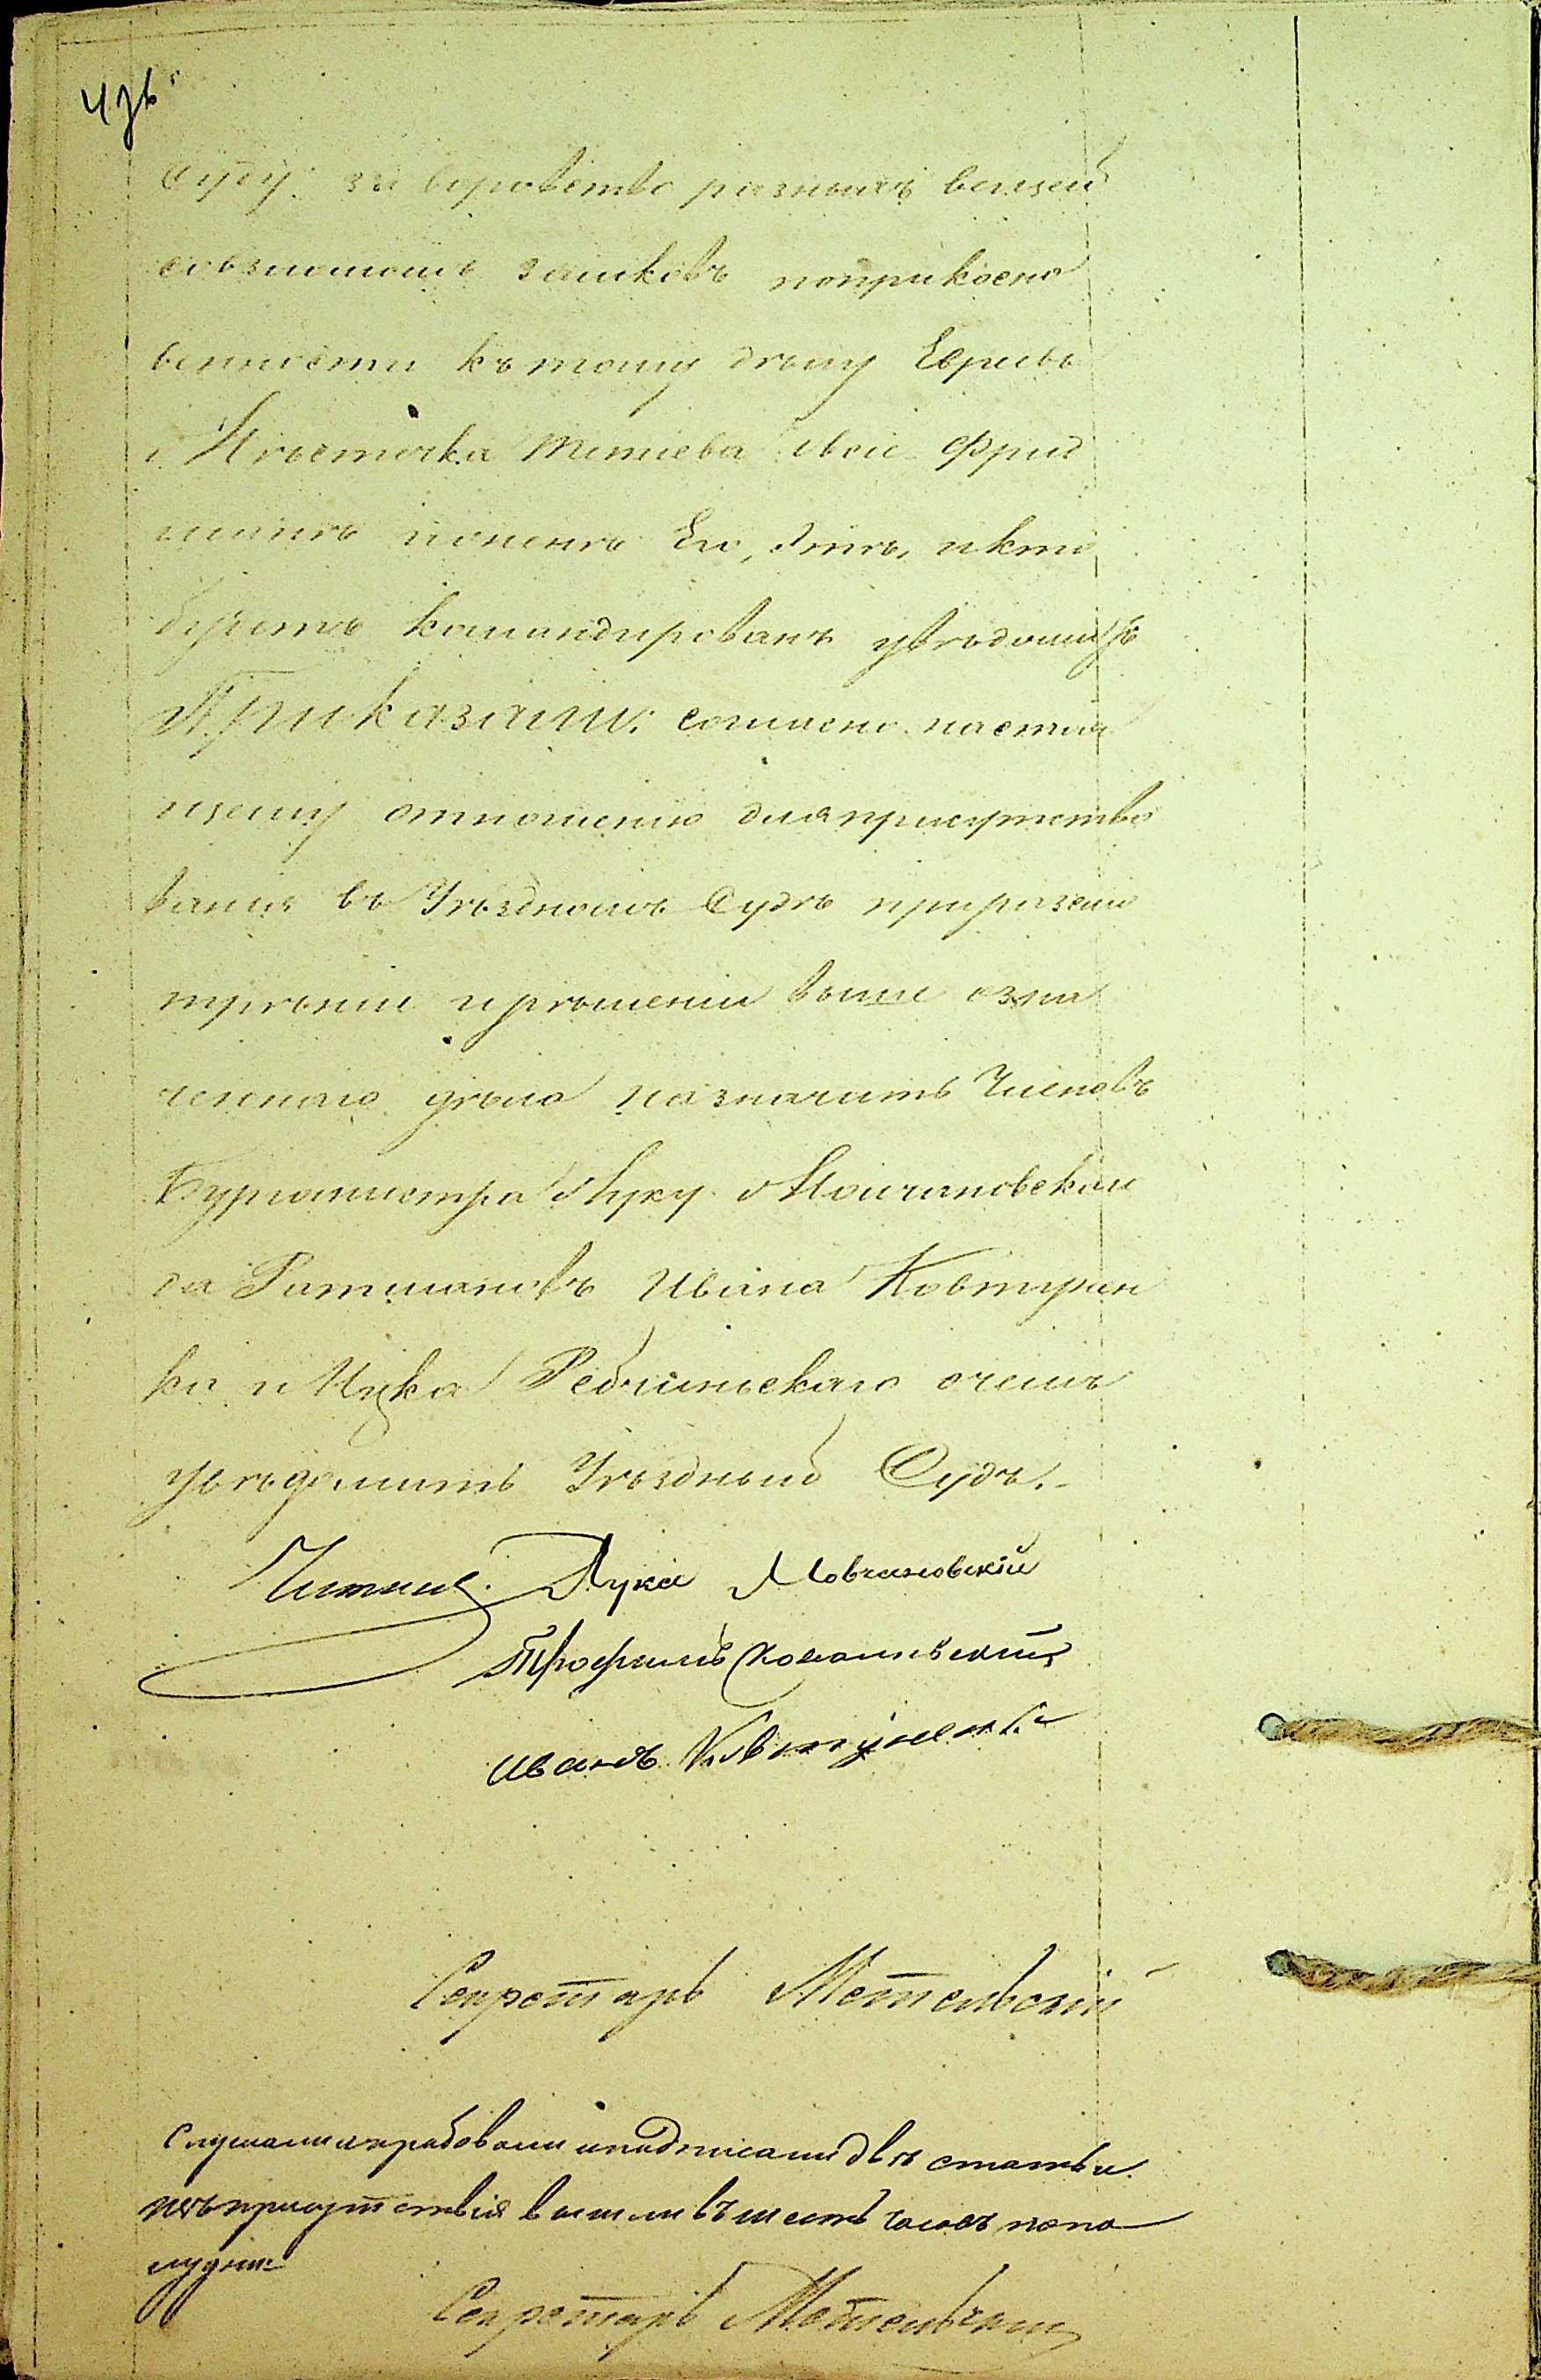 суду за воровство разныхъ вещей
совзломомъ замковъ поприкосно
венности къ тому дѣлу Евреевъ
Мѣстечка Тетіева Фрид
Его, и кто
будетъ командированъ увѣдомить
Приказали: согласно настоя
щему отношенію для присутство
ванія въ Уѣздномъ Судѣ при разсмо
трѣніи и рѣшеніи выше озна
ченнаго дѣла назначить Членовъ
Бургомистра Луку Молчановска
го Ратмановъ Ивана Ковтунен
ка и Ицка очемъ
увѣдомить Уѣздный Судъ.
Лука Мовчановскій
Трофимъ
Иванъ Ковтуненко
Секретарь Метельскій
Слушали и подписали двѣ статьи
изъ присутствія вышли въ шесть часовъ попо
лудни
Секретарь Метельскій